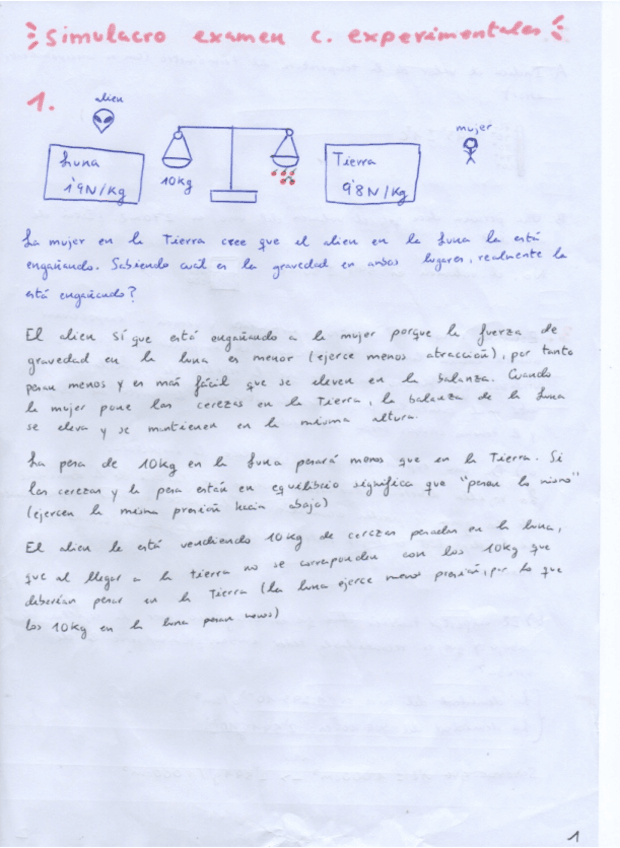 Simulacro examen c. experimentales
1.
alien
mujer
Luna
1'9N/kg
10kg
Tierra
9'8N/kg
La mujer en la Tierra cree que el alien en la Luna la está
engañando. Sabiendo cuál es la gravedad en ambos lugares, realmente la
está engañando?
El alien sí que está engañando a la mujer porque la fuerza de
gravedad en la luna es menor (ejerce menos atracción), por tanto
pesan menos y es más fácil que se eleven en la balanza. Cuando
la mujer pone las cerezas en la Tierra, la balanza de la Luna
se eleva y se mantienen en la misma altura.
La pesa de 10kg en la Luna pesará menos que en la Tierra. Si
las cerezas y la pesa están en equilibrio significa que "pesan lo mismo"
(ejercen la misma presión hacia abajo)
El alien le está vendiendo 10kg de cerezas pesadas en la luna,
que al llegar a la tierra no se corresponden con los 10kg que
deberían pesar en la Tierra (La luna ejerce menos presión, por lo que
los 10kg en la luna pesan menos)
1